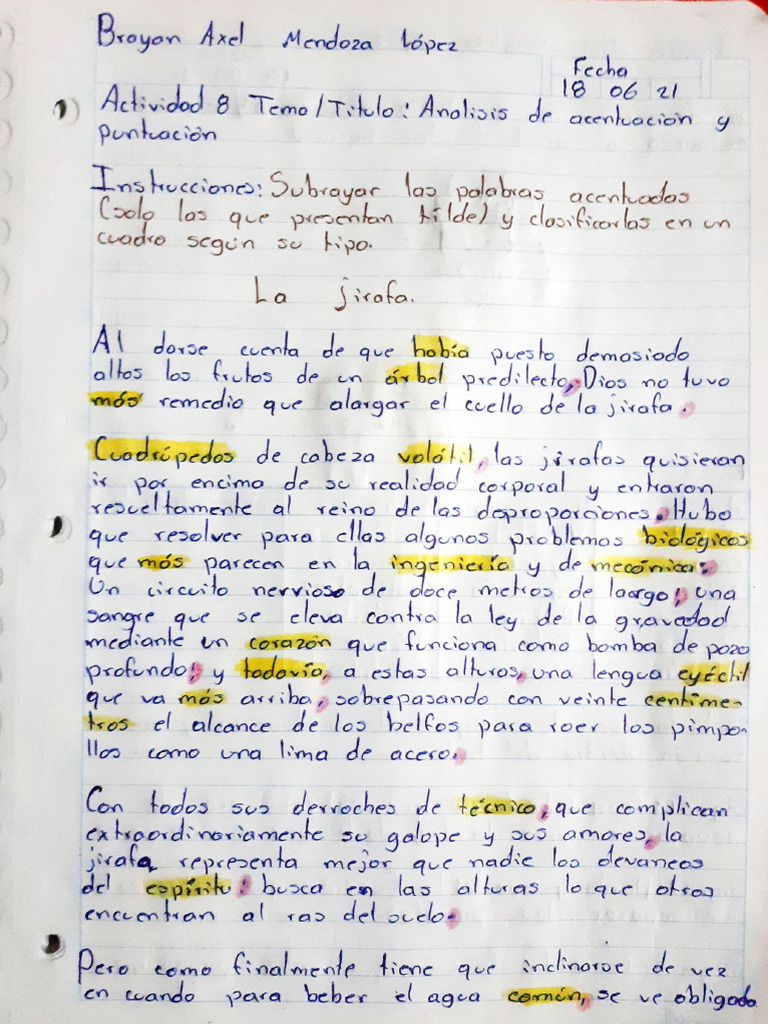 Brayan Axel Mendoza López
Fecha
18 06 21
Actividad 8 Tema/Titulo: Analisis de acentuación y
puntuación
Instrucciones: Subrayar las palabras acentuadas
(solo las que presentan tilde) y clasificarlas en un
cuadro según su tipo.
La jirafa.
Al darse cuenta de que había puesto demasiado
altos los frutos de un árbol predilecto, Dios no tuvo
más remedio que alargar el cuello de la jirafa.
Cuadrúpedos de cabeza volátil, las jirafas quisieran
ir por encima de su realidad corporal y entraron
resueltamente al reino de las desproporciones. Hubo
que resolver para ellas algunos problemas biológicos
que más parecen en la ingeniería y de mecánica:
Un circuito nervioso de doce metros de laargo; una
sangre que se eleva contra la ley de la gravedad
mediante un corazón que funciona como bomba de pozo
profundo; y todavía, a estas alturas, una lengua eyéctil
que va más arriba, sobrepasando con veinte centíme-
tros el alcance de los belfos para roer los pimpo-
llos como una lima de acero.
Con todos sus derroches de técnica, que complican
extraordinariamente su galope y sus amores, la
jirafa representa mejor que nadie los devaneos
del espíritu: busca en las alturas lo que otros
encuentran al ras del suelo.
Pero como finalmente tiene que inclinarse de vez
en cuando para beber el agua común, se ve obligada